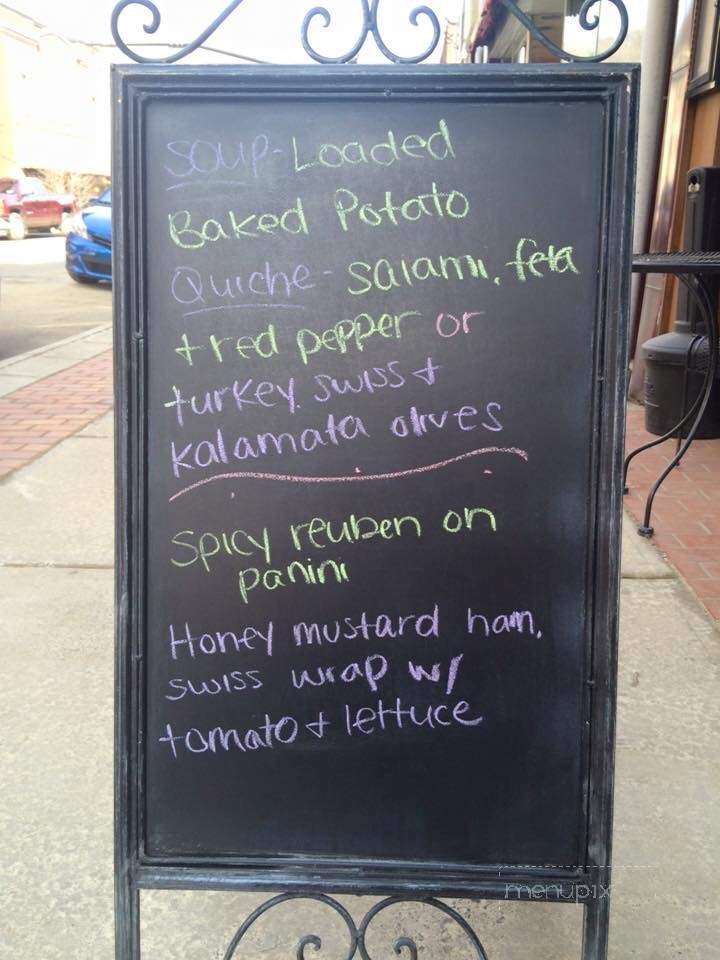 Soup-Loaded
Baked Potato
Quiche-salami, feta
+ red pepper or
turkey, swiss +
kalamata olives
Spicy reuben on
panini
Honey mustard ham,
swiss wrap w/
tomato + lettuce
menupix